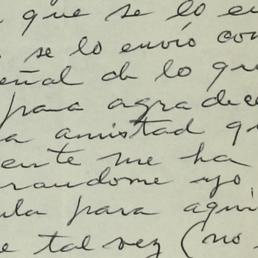 que se lo en
se lo envío con
eñal de lo que
para agradece
a amistad q
ente me ha
randome yo
ula para aqui
e tal vez (no